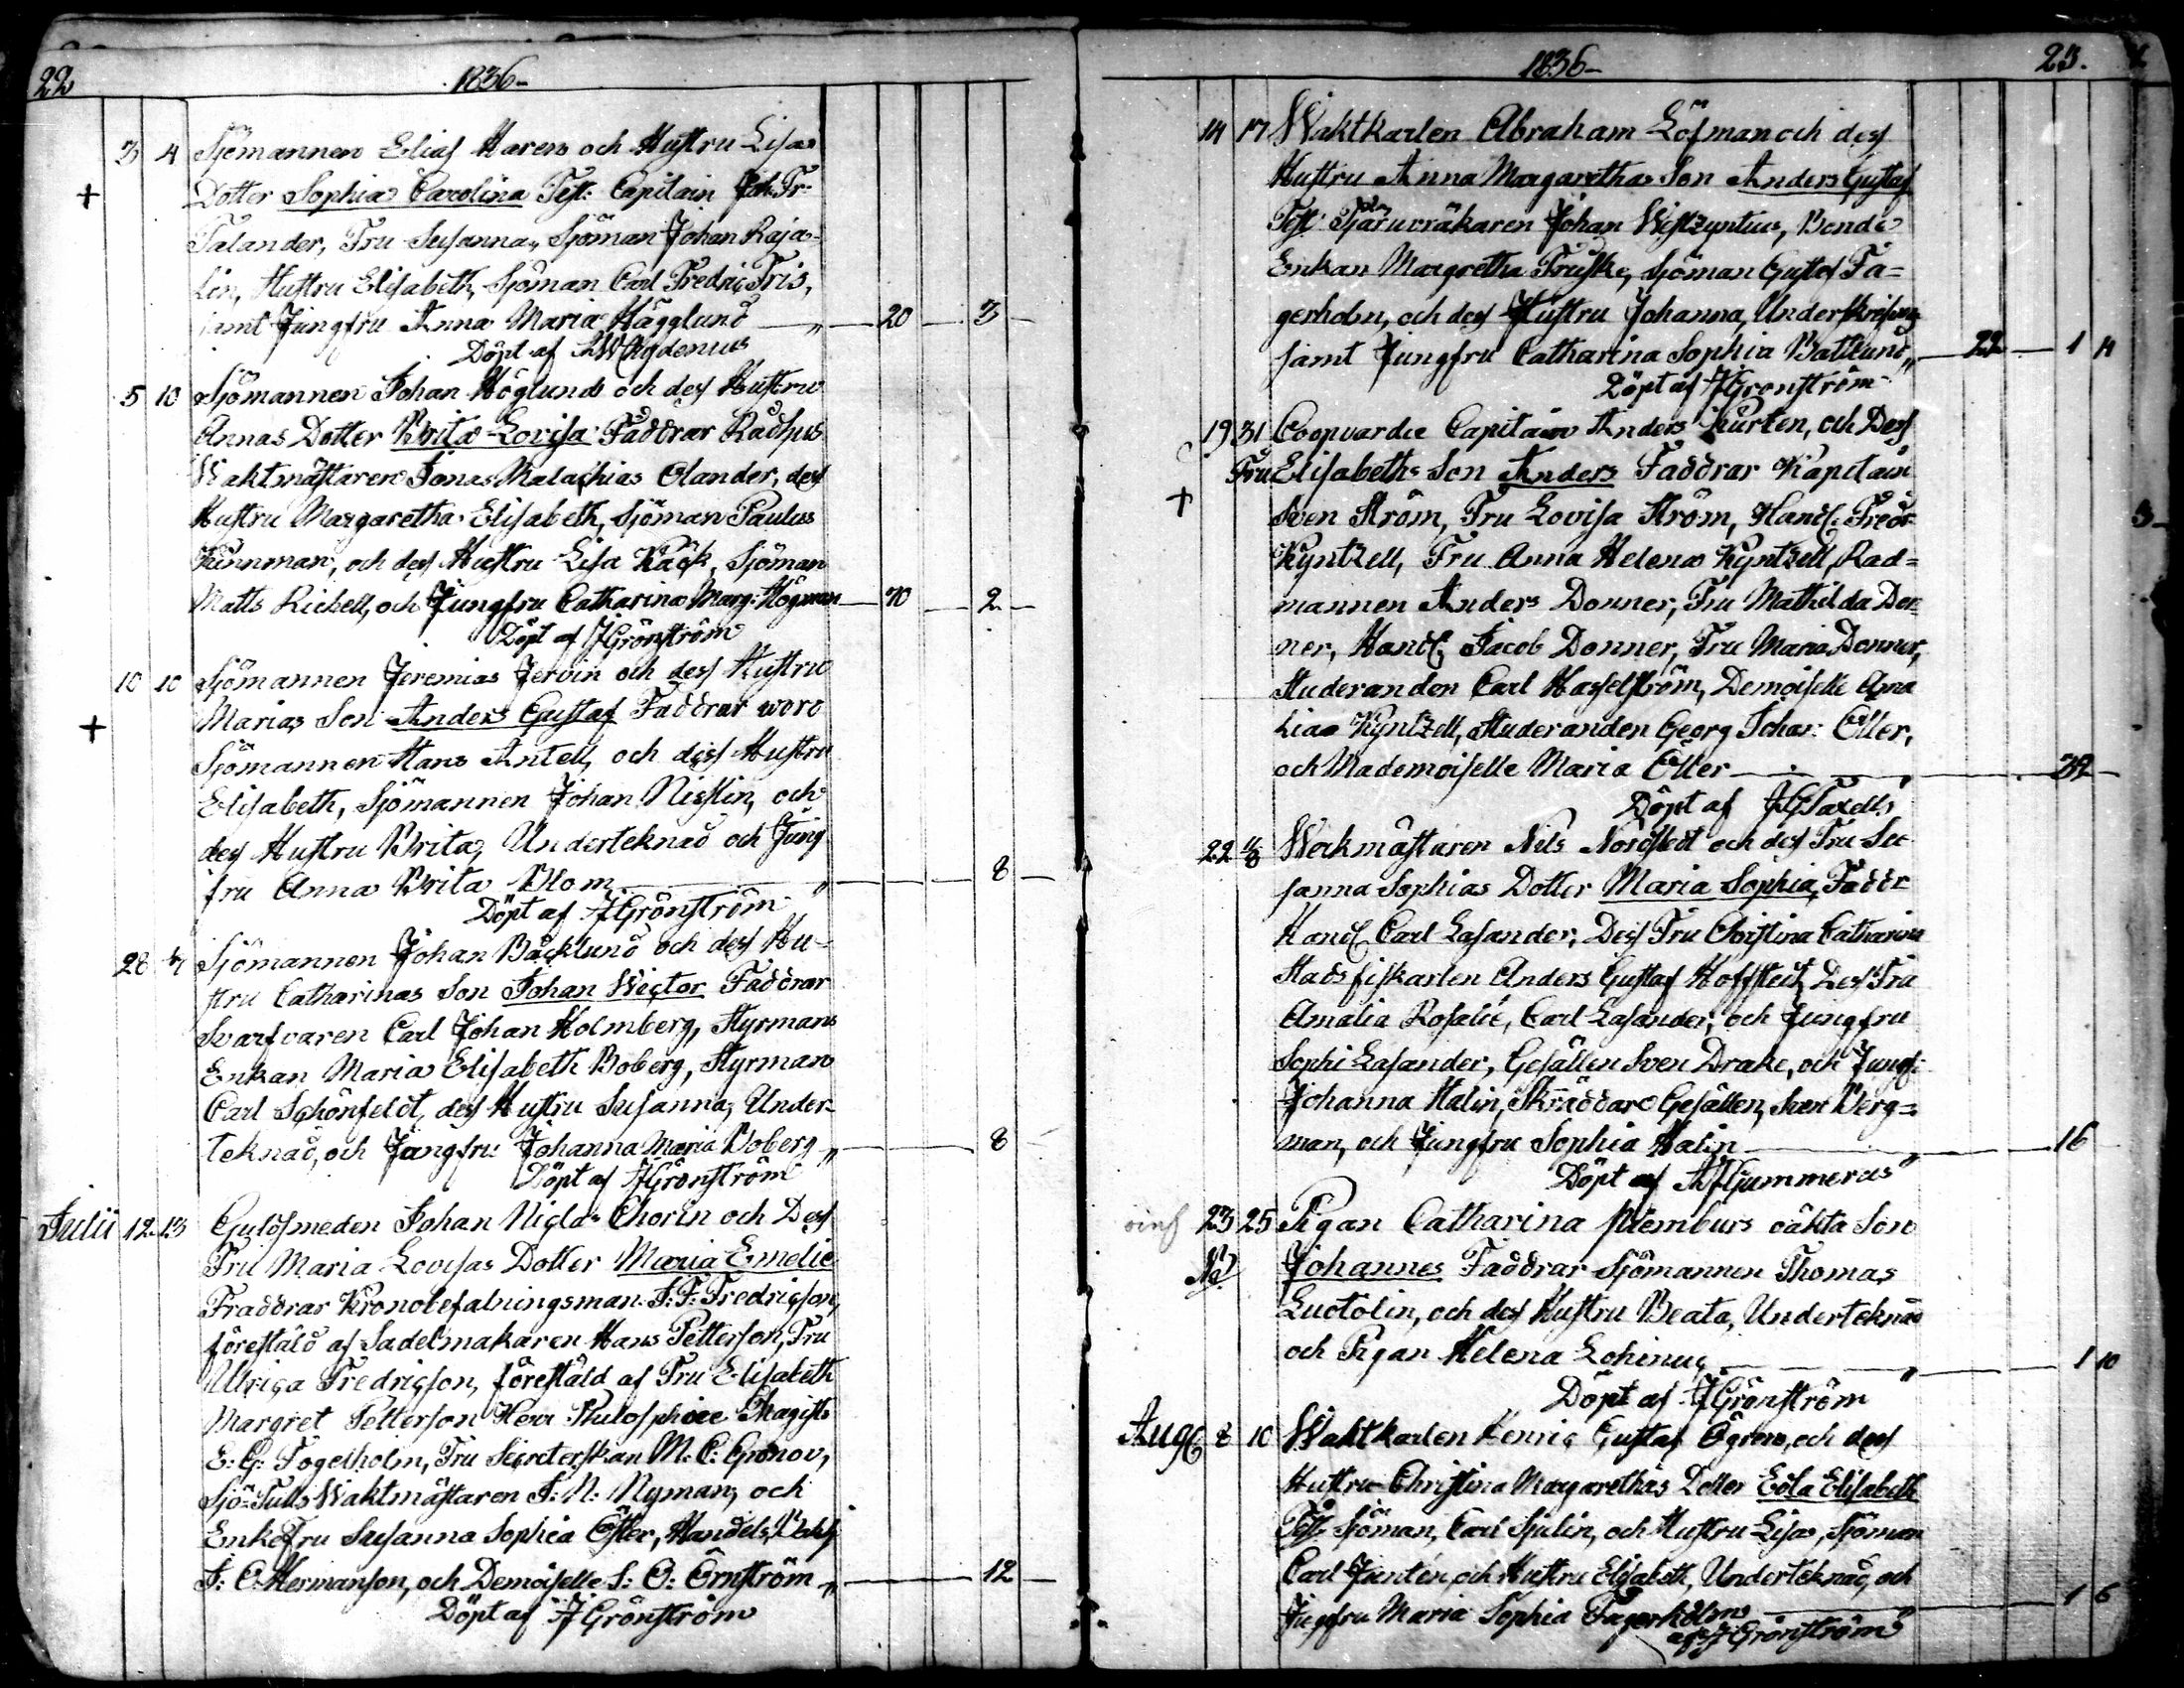 22 1836-
3 4 Sjömannen Elias Haren och Hustru Lisas
+ Dotter Sophia Carolina Test: Capitain Joh: Fr:
Talander, Fru Susanna, Sjöman Johan Raja-
lin, Hustru Elisabeth, Sjöman Carl Fredric Fris,
samt Jungfru Anna Maria Hägglund 20 3
Döpt af Aygdenius
5 10 Sjömannen Johan Höglund och dess Hustru
Annas Dotter Brita Lovisa Faddrar Rådhus
Waktmästaren Jonas Malachias Olander, dess
Hustru Margaretha Elisabeth, Sjöman Paulus
Kunnman, och dess Hustru Lisa Käck, Sjöman
Matts Richell, och Jungfru Catharina Marg: Högman 70 2
Döpt af J Grönström
10 10 Sjömannen Jeremias Jervin och dess Hustru
+ Marias Son Anders Gustaf Faddrar woro
Sjömannen Hans Antell, och dess Hustru
Elisabeth, Sjömannen Johan Nisslin, och
dess Hustru Brita, Underteknad och Jung
fru Anna Brita Blom 8
Döpt af J Grönström
28 Sjömannen Johan Bäcklund och dess Hu-
stru Catharinas Son Johan Wictor Faddrar
Svarfvaren Carl Johan Holmberg, Styrmans
Enkan Maria Elisabeth Boberg, Styrman
Carl Schönfeldt, dess Hustru Susanna, Under-
teknad, och Jungfru Johanna Maria Boberg 8
Döpt af J Grönström
Julii 12 13 Guldsmeden Johan Niclas Chorin och Dess
Fru Maria Lovisas Dotter Maria Emelie
Fraddrar Kronobefalningsman J: F: Fredricson,
förestäld af Sadelmakaren Hans Petterson, Fru
Ulrica Fredricson, förestäld af Fru Elisabeth
Margret Petterson Herr Philosophiae Magist:
E: G: Fogelholm, Fru Secreterskan M: C: Gronov,
Sjö-Tulls Waktmästaren J: N: Nyman, och
Enkefru Susanna Sophia Öster, Handels
J: O: Hermanson, och Demoiselle S: O: Örnström 12
Döpt af J Grönström
1836- 23.
14 17 Waktkarlen Abraham Löfman och dess
Hustru Anna Margarethas Son Anders Gustaf
Test: Tjäruvräkaren Johan Westzyntius, Bonde
Enkan Margretha Truske, Sjöman Gustaf Fa=
gerholm, och dess Hustru Johanna, Underskrifven
samt Jungfru Catharina Sophia Battlund 22 1 14
Döpt af J Grönström
19 31 Coopvardie Capitain Anders Kurten, och Dess
+ Fru Elisabeths Son Anders Faddrar Kapitain
Sven Ström, Fru Lovisa Ström, Handl: Fredr 3
Kyntzell, Fru Anna Helena Kyntzell, Råd=
mannen Anders Donner, Fru Mathilda Don
ner, Handl: Jacob Donner, Fru Maria Donner,
Studeranden Carl Hasselström, Demoiselle Ama
lia Kyntzell, Studeranden Georg Johan Öller,
och Mademoiselle Maria Öller 32
Döpt af J G Taxell
22 Werkmästaren Nils Nordstedt och dess Fru Su
sanna Sophias Dotter Maria Sophia, Faddr
Handl Carl Lasander, Dess Fru Christina Catharina
Stadsfiskarlen Anders Gustaf Hoffstedt, Dess Fru
Amalia Rosalie, Carl Lasander, och Jungfru
Sophi Lasander, Gesällen Sven Drake, och Jungf:
Johanna Halin, Skräddare Gesällen, Sven Berg=
man, och Jungfru Sophia Halin 16
Döpt af A Hjummerus
23 25 Pigan Catharina Stemburs oäkta Son
Johannes Faddrar Sjömannen Thomas
Luctolin, och dess Hustru Beata, Underteknad
och Pigan Helena Lohinus 1 10
Döpt af J Grönström
Aug 8 10 Waktkarlen Henric Gustaf Ögren, och dess
Hustru Christina Margarethas Dotter Edla Elisabeth
Test: Sjöman, Carl Sjulin, och Hustru Lisa, Sjöman
Carl Juntén, och Hustru Elisabeth, Underteknad, och
Jugfru Maria Sophia Fagerholm 1 6
af J Grönström